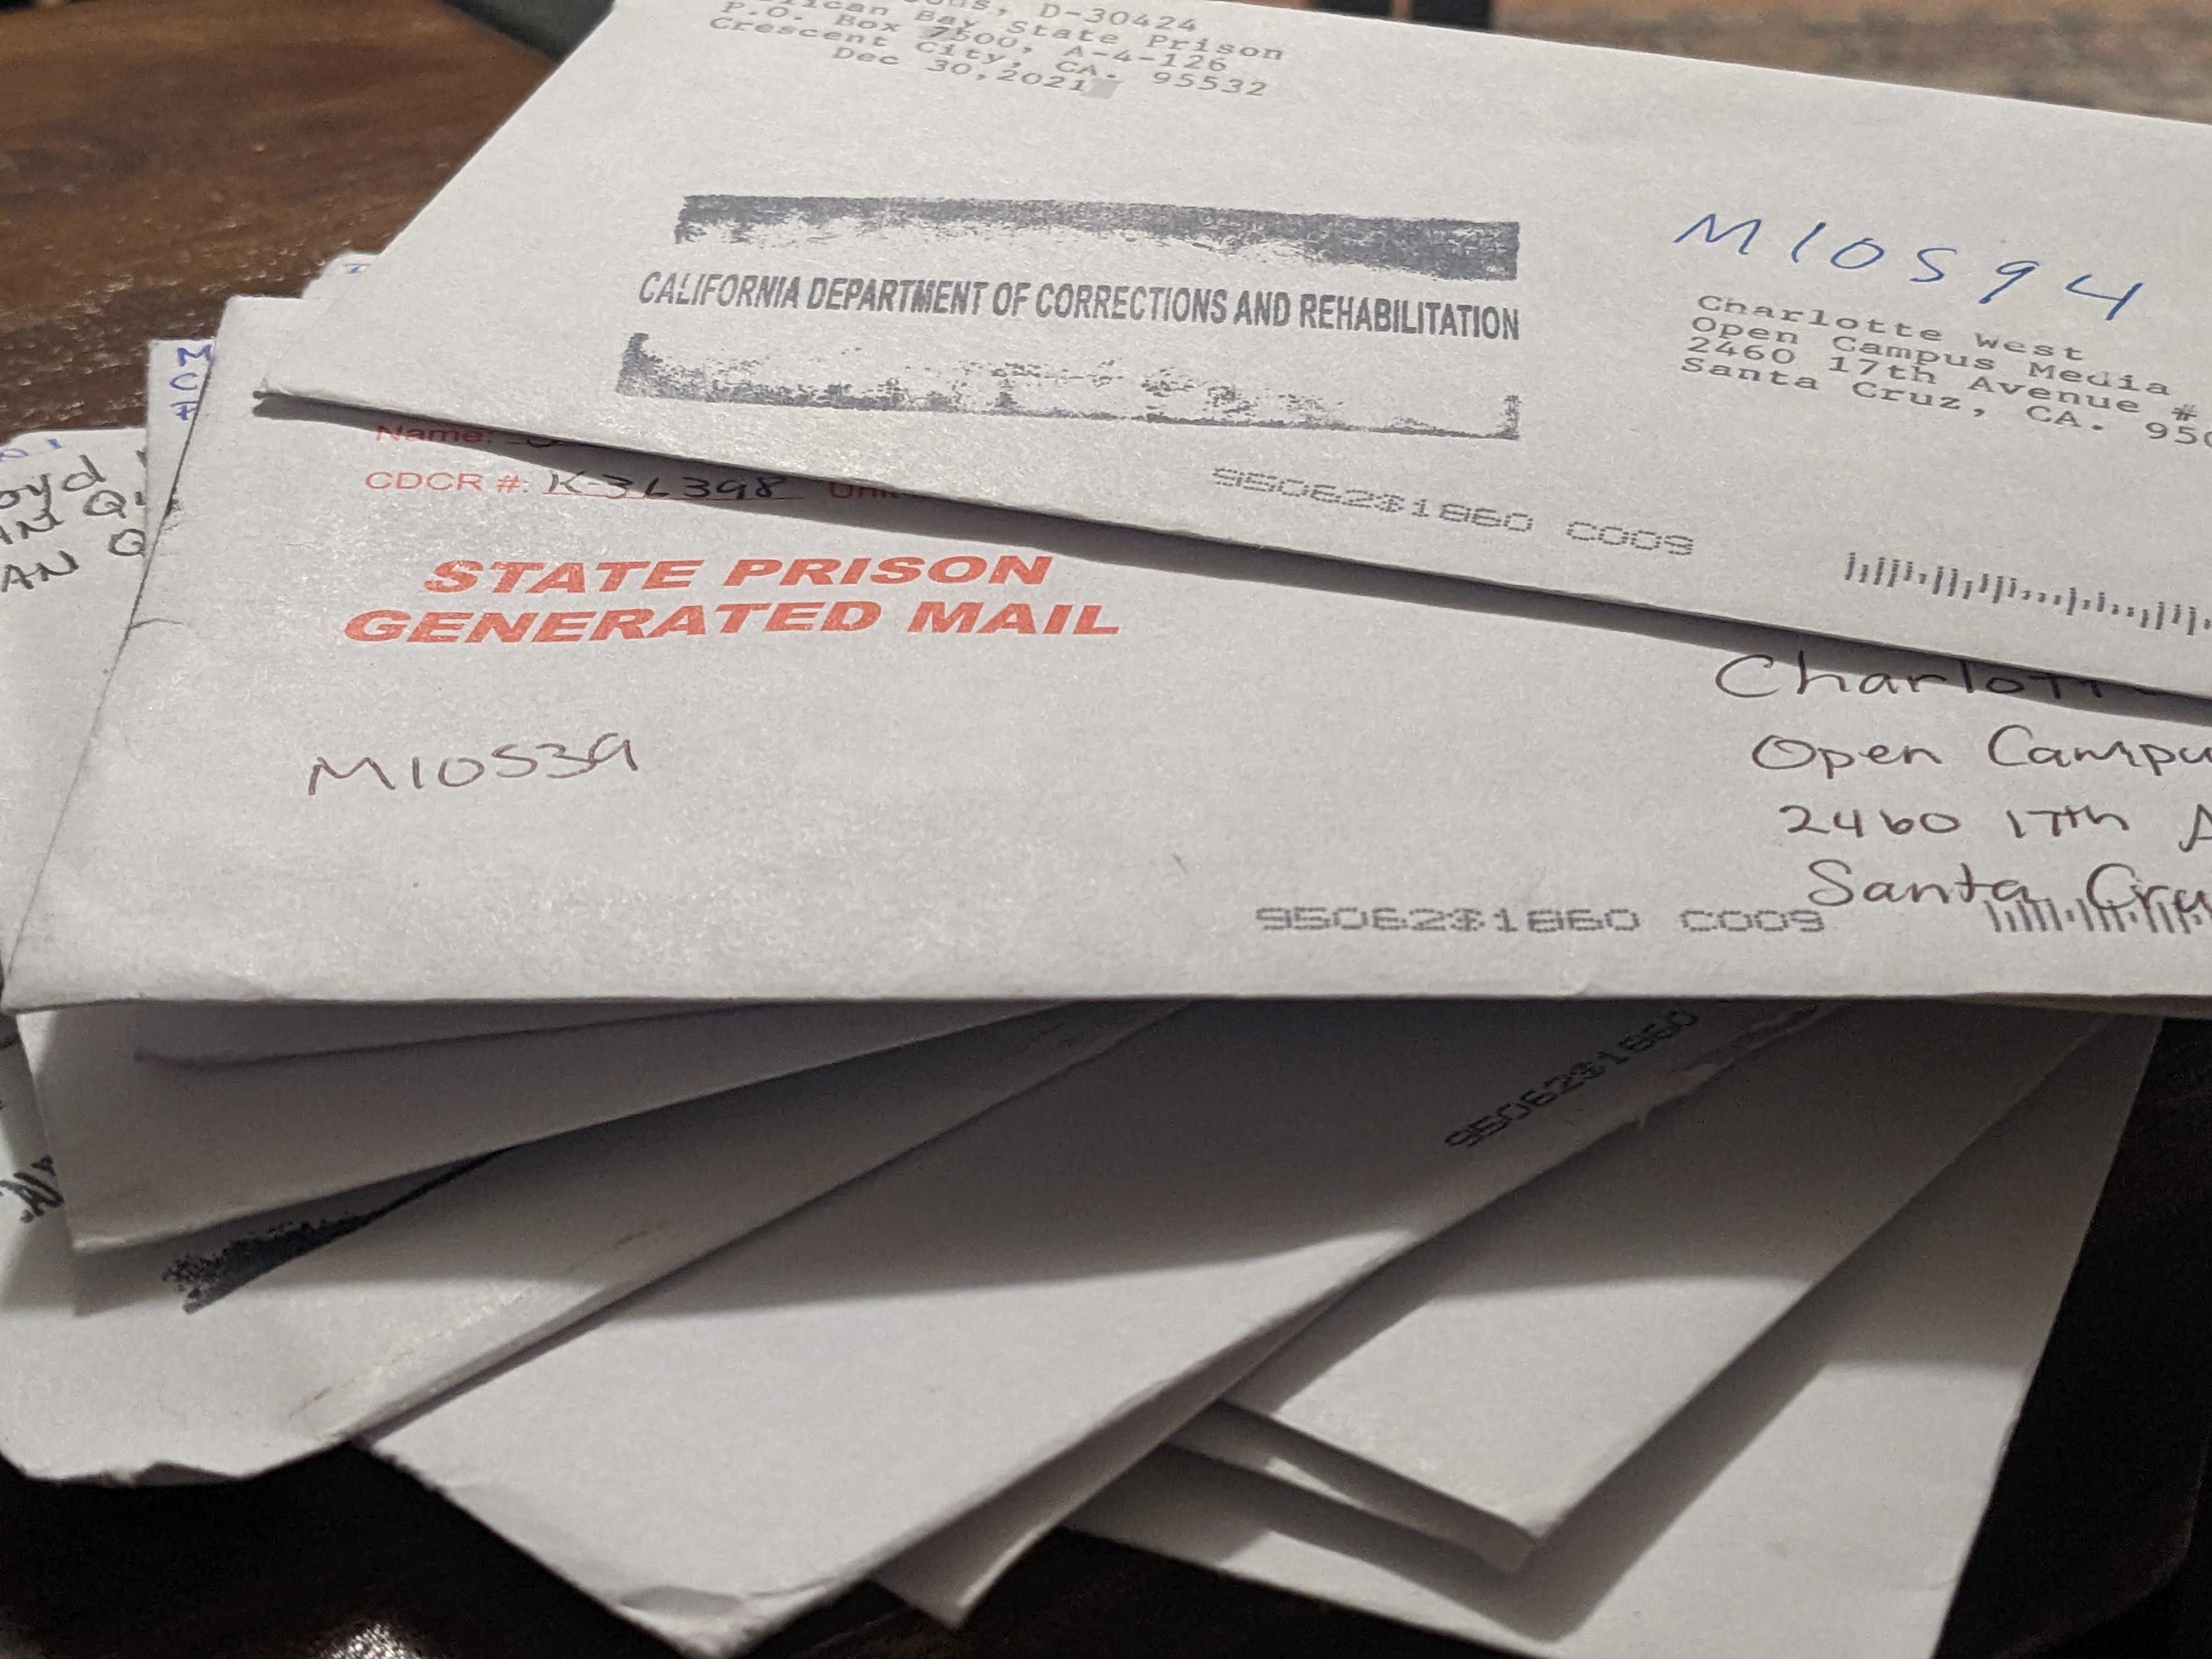 D-30424
Bay State Prison
P.O. Box 7500, A-4-126
Crescent City, CA. 95532
Dec 30,2021
CALIFORNIA DEPARTMENT OF CORRECTIONS AND REHABILITATION
M10594
Charlotte West
Open Campus Media
2460 17th Avenue #
Santa Cruz, CA.
95062$1860 C009
Name:
CDCR #:
STATE PRISON
GENERATED MAIL
M10539
Open
2460 17th
95062$1860 C009
95062$1860